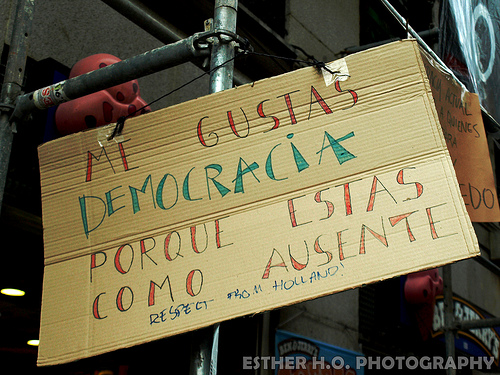 ME GUSTAS
DEMOCRACIA
PORQUE ESTAS
COMO AUSENTE
RESPECT FROM HOLLAND!
BEN & JERRY'S
ESTHER H.O. PHOTOGRAPHY